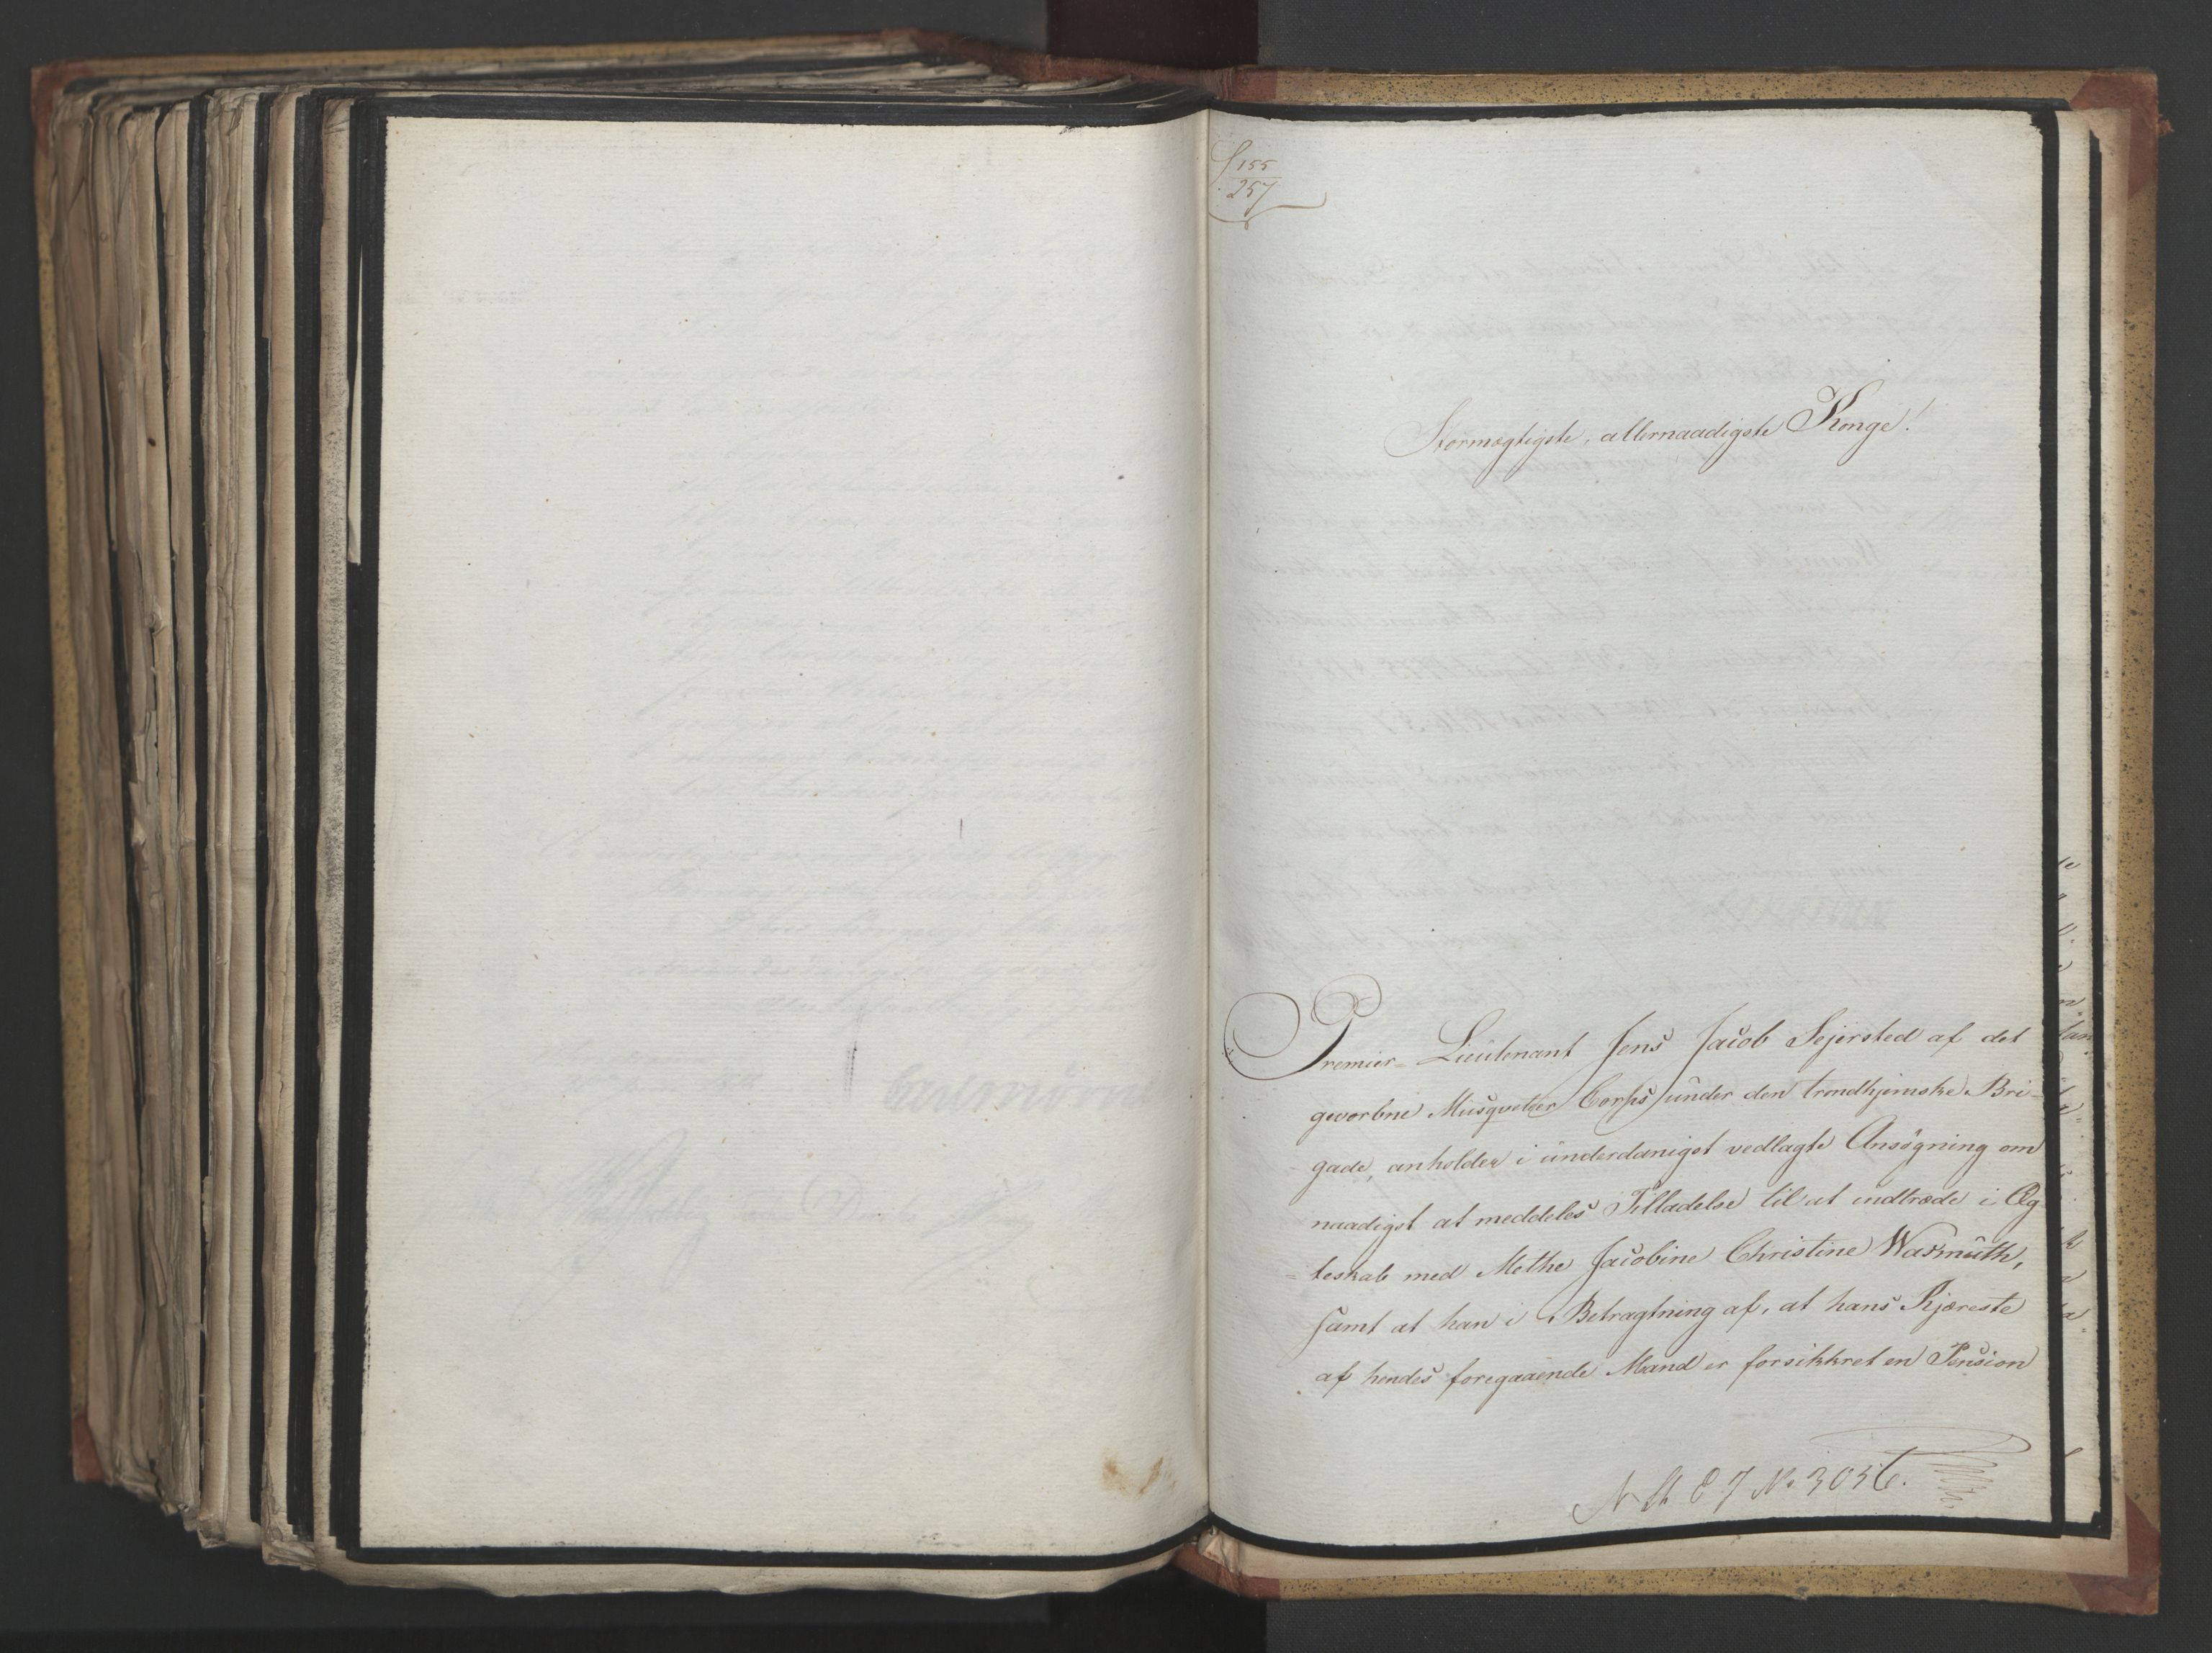 155
257
Stormægtigste, allernaadigste Konge!
Premier-Lieutenant Jens Jacob Sejersted af det
gevorbne Musqveteer Corps under den trondhjemske Bri-
gade, anholder i underdanigst vedlagte Ansøgning om
naadigst at meddeles Tilladelse til at indtræde i Æg
=teskab med Methe Jacobine Christine Wasmuth,
samt at han i Betragtning af, at hans Kjæreste
af hendes foregaaende Mand er forsikkret en Pension
No 3056.